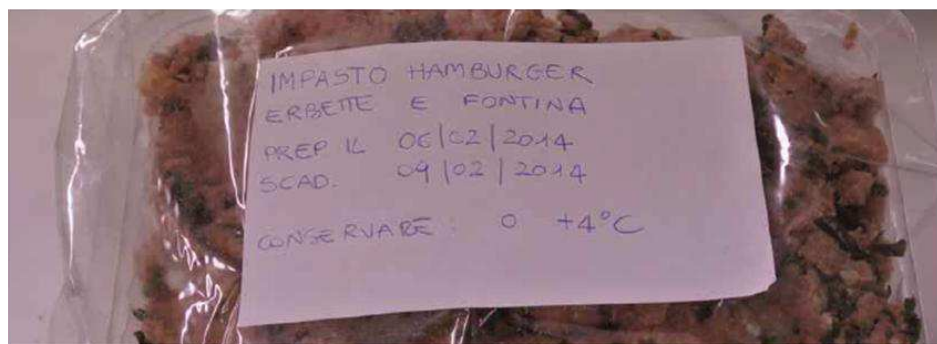 IMPASTO HAMBURGER
ERBETTE E FONTINA
PREP IL 06/02/2014
SCAD. 09/02/2014
CONSERVARE: 0 +4°C